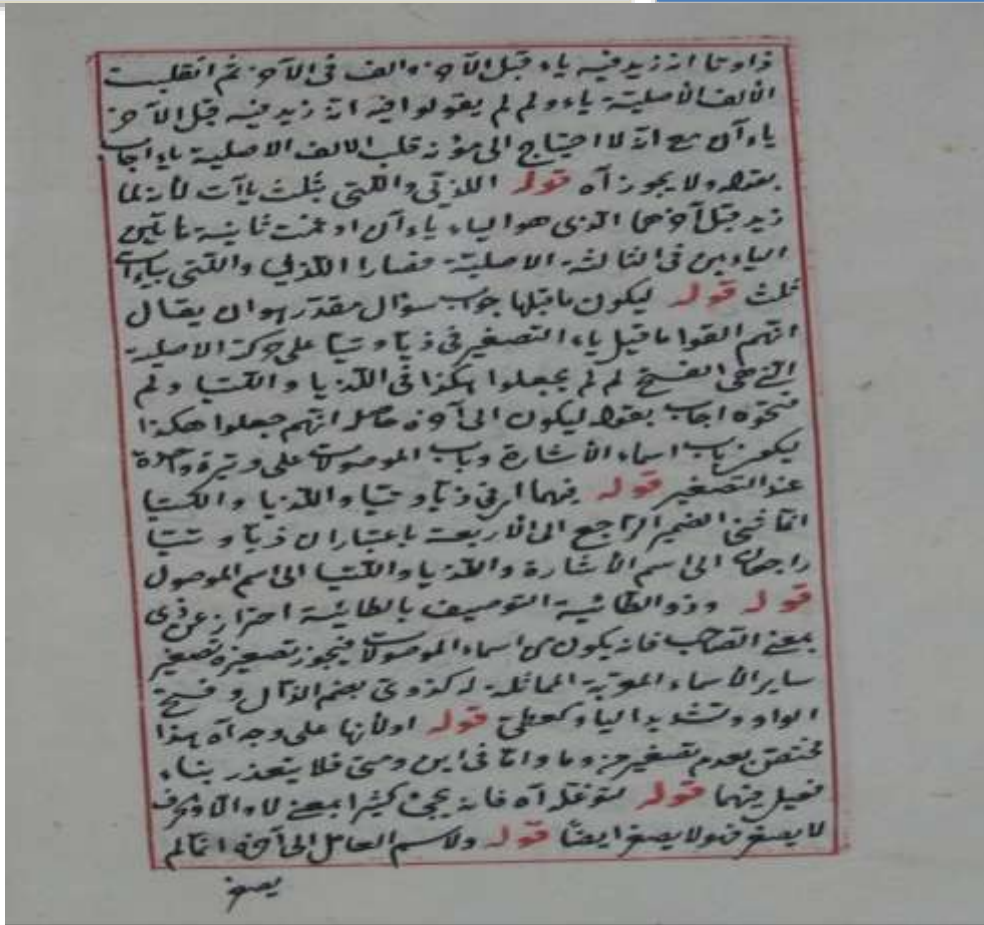 ذا وتا انه زيد فيه ياء قبل الآخر والف فى الآخر ثم انقلبت
الألف الأصلية ياء ولم لم يقولوا فيه انه زيد فيه قبل الآخر
ياء آن مع انه لا احتياج الى مؤنة قلب الالف الاصلية ياء اجاب
بقوله ولا يجوز آه قوله اللذيّ واللتيّ بثلث ياآت لأنه لما
زيد قبل آخرهما الذى هو الياء ياء آن ادغمت ثانية
اليائين فى الثالثة الاصلية فصارا اللذيّ واللتيّ بياءات
ثلث قوله ليكون ما قبلها جواب سؤال مقدر هو ان يقال
انهم القوا ما قبل ياء التصغير فى ذيا وتيا على حركته الاصلية
التى هى الفتح لم لم يجعلوا هكذا فى اللذيا واللتيا ولم
فتحوه اجاب بقوله ليكون الى آخره حاصله انهم جعلوا هكذا
ليكون باب اسماء الأشارة وباب الموصولات على وتيرة واحدة
عند التصغير قوله فيهما اى فى ذيا وتيا واللذيا واللتيا
انما ثنى الضمير الراجع الى الأربعة باعتبار ان ذيا وتيا
راجعان الى اسم الأشارة واللذيا واللتيا الى اسم الموصول
قوله وذو الطائية التوصيف بالطائية احتراز عن ذى
بمعنى الصاحب فانه يكون من اسماء الموصولات فيجوز تصغيره تصغير
ساير الأسماء المعربة المماثلة له كذوى بضم الذال وفتح
الواو وتشديد الياء كعلىّ قوله اولأنها على وجه آه هذا
مختص بعدم تصغير من وما واما فى اين ومتى فلا يتعذر بناء
فعيل فيهما قوله لتوغله آه فانه يجئ كثيرا بمعنى لا والا والحرف
لا يصغر فهو لا يصغر ايضا قوله ولاسم العامل الى آخره انما لم
يصغر